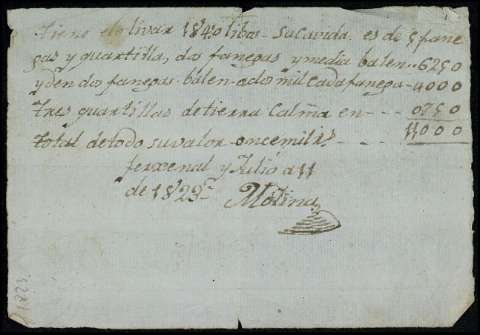 Tiene el olivar 1840 libos - su cavida es de 5 fane
gas y quartilla, dos fanegas y media balen .. 6250
y den dos fanegas balen - a dos mil cada fanega - 4000
tres quartillas de tierra Calma en - - - 0750
total de todo su valor once mil rs. - - - 11000
ferxenal y Julio a 11
de 1829 =
Molina
1829